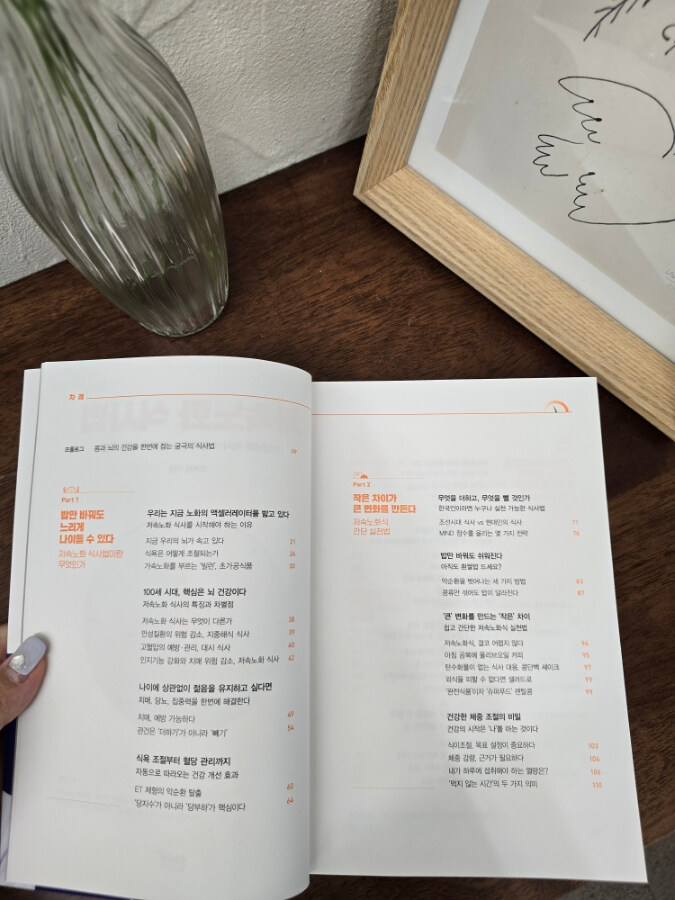 차 례
프롤로그 몸과 뇌의 건강을 한번에 잡는 궁극의 식사법
Part 1
밥만 바꿔도
느리게
나이들 수 있다
저속노화 식사법이란
무엇인가
우리는 지금 노화의 액셀러레이터를 밟고 있다
저속노화 식사를 시작해야 하는 이유
지금 우리의 뇌가 속고 있다 21
식욕은 어떻게 조절되는가
가속노화를 부르는 '빌런', 초가공식품
100세 시대, 핵심은 뇌 건강이다
저속노화 식사의 특징과 차별점
저속노화 식사는 무엇이 다른가 38
만성질환의 위험 감소, 지중해식 식사 39
고혈압의 예방·관리, 대시 식사 40
인지기능 강화와 치매 위험 감소, 저속노화 식사 42
나이에 상관없이 젊음을 유지하고 싶다면
치매, 당뇨, 집중력을 한번에 해결한다
치매, 예방 가능하다 49
관건은 '더하기'가 아니라 '빼기' 54
식욕 조절부터 혈당 관리까지
자동으로 따라오는 건강 개선 효과
ET 체형의 악순환 탈출 60
'당지수'가 아니라 '당부하'가 핵심이다 64
Part 2
작은 차이가
큰 변화를 만든다
저속노화식
간단 실천법
무엇을 더하고, 무엇을 뺄 것인가
한국인이라면 누구나 실천 가능한 식사법
조선시대 식사 vs 현대인의 식사 71
MIND 점수를 올리는 몇 가지 전략 76
밥만 바꿔도 쉬워진다
아직도 흰쌀밥 드세요?
악순환을 벗어나는 세 가지 방법 83
콩류만 섞어도 밥이 달라진다 87
'큰' 변화를 만드는 '작은' 차이
쉽고 간단한 저속노화식 실천법
저속노화식, 결코 어렵지 않다 94
아침 공복에 올리브오일 커피 95
탄수화물이 없는 식사 대용, 콩단백 셰이크 97
외식을 피할 수 없다면 샐러드로 99
'완전식품'이자 '슈퍼푸드' 렌틸콩 99
건강한 체중 조절의 비밀
건강의 시작은 '나'를 아는 것이다
식이조절, 목표 설정이 중요하다 103
체중 감량, 근거가 필요하다 104
내가 하루에 섭취해야 하는 열량은? 106
'먹지 않는 시간'의 두 가지 의미 110